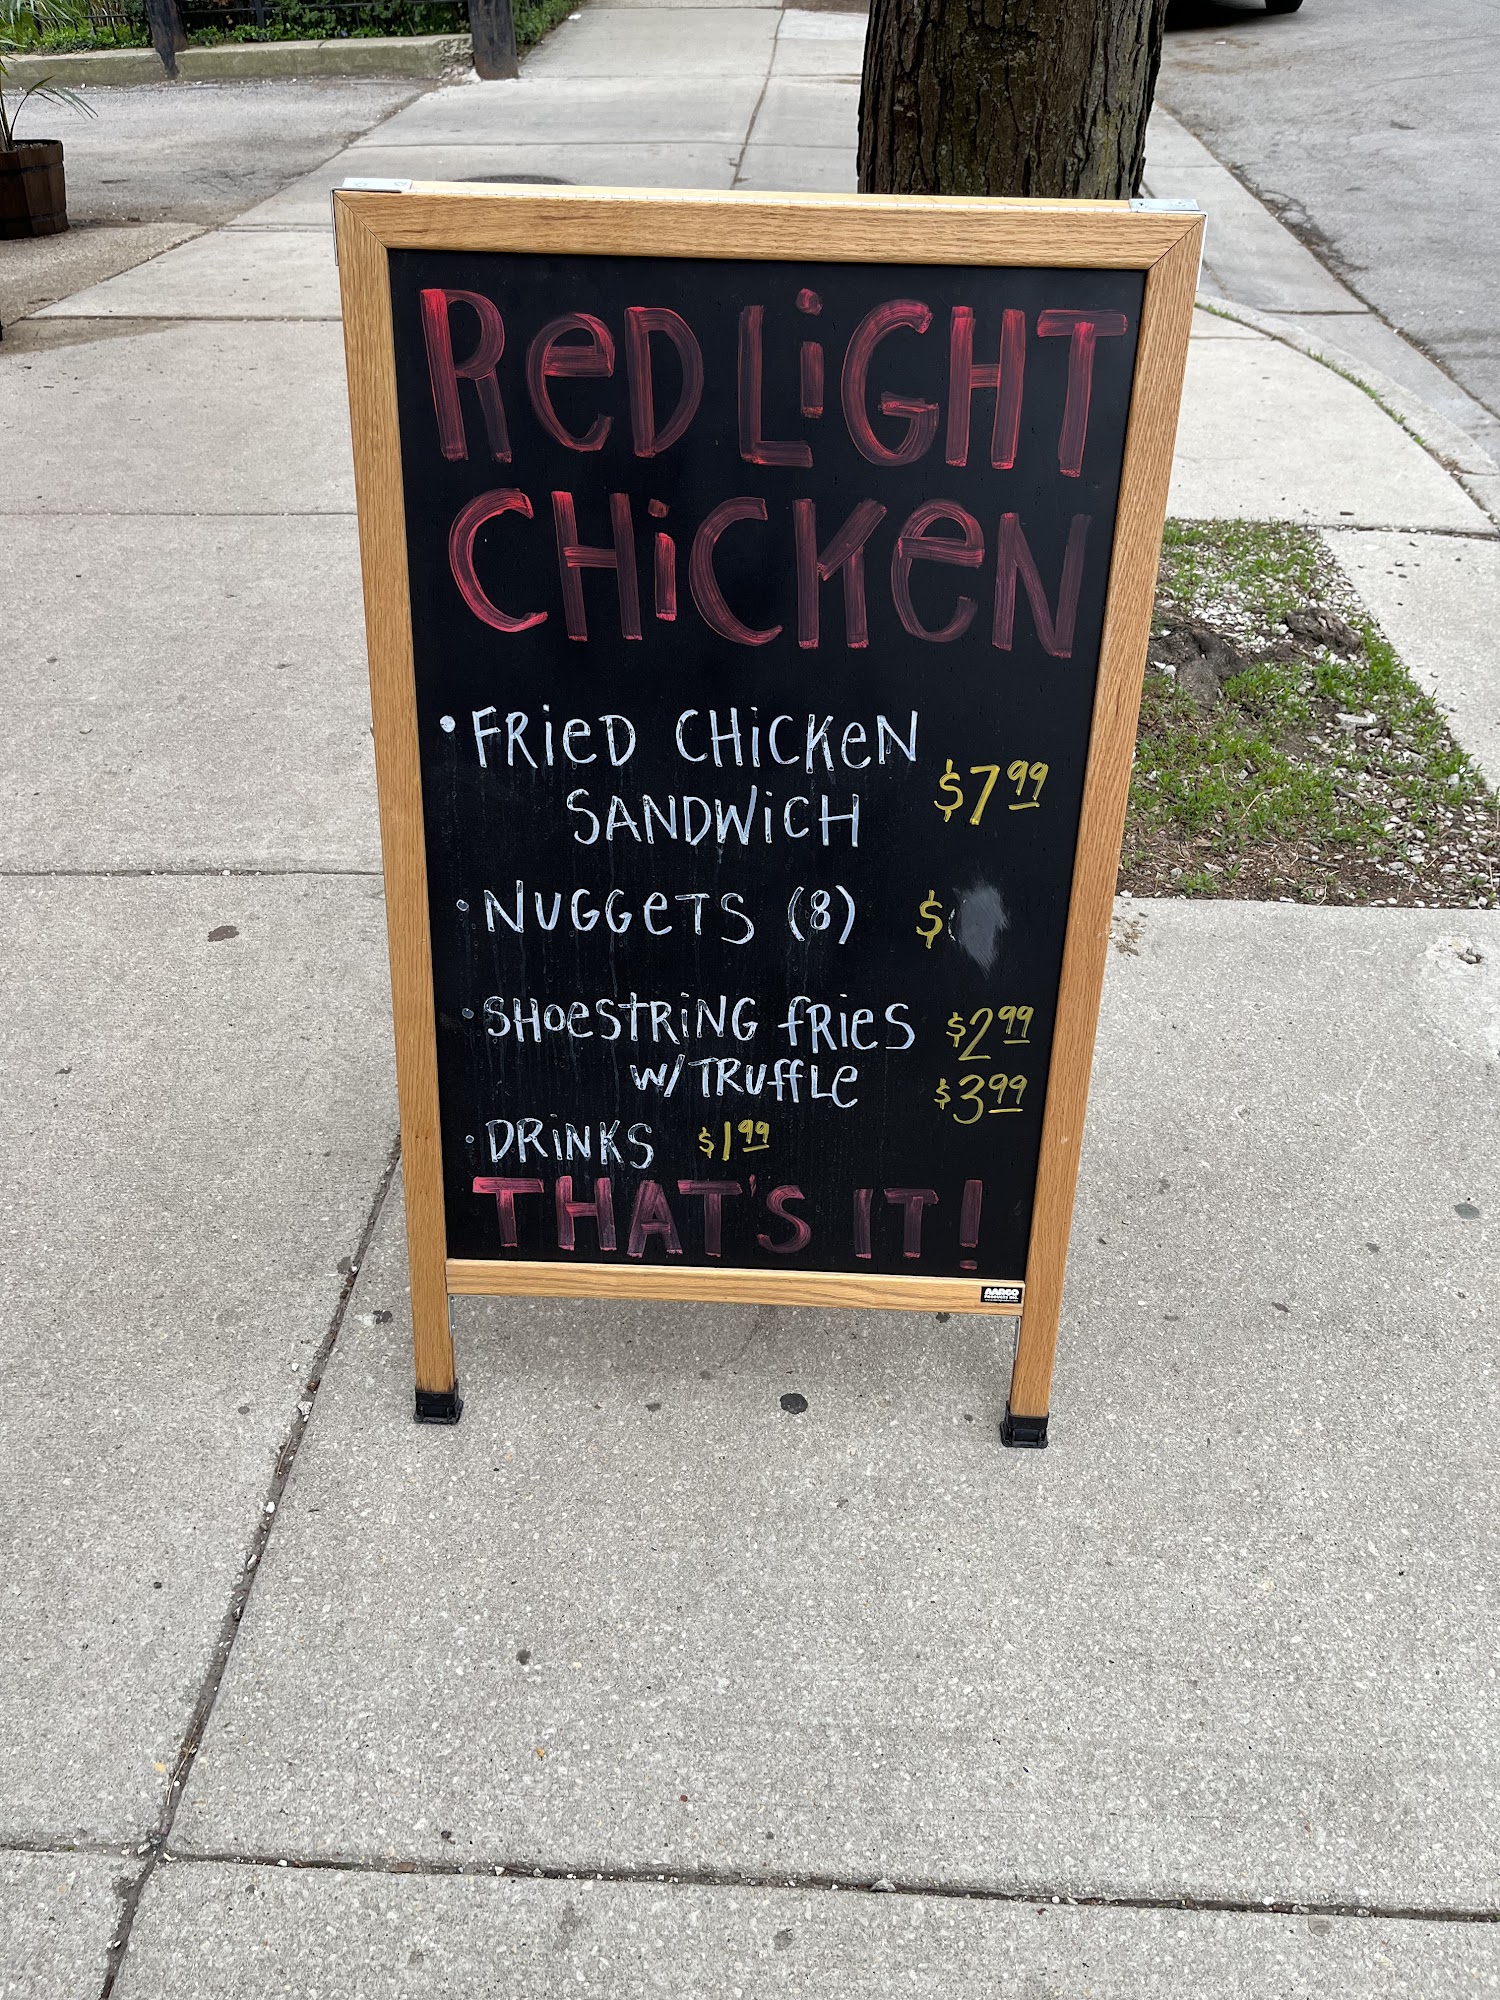 ReD LiGHT
CHiCKeN
• FRieD CHiCKeN
SANDWiCH $7.99
• NUGGeTS (8) $
• SHoeSTRiNG fRieS $2.99
w/ TRUffLe $3.99
• DRiNKS $1.99
THAT'S IT!
AARCO